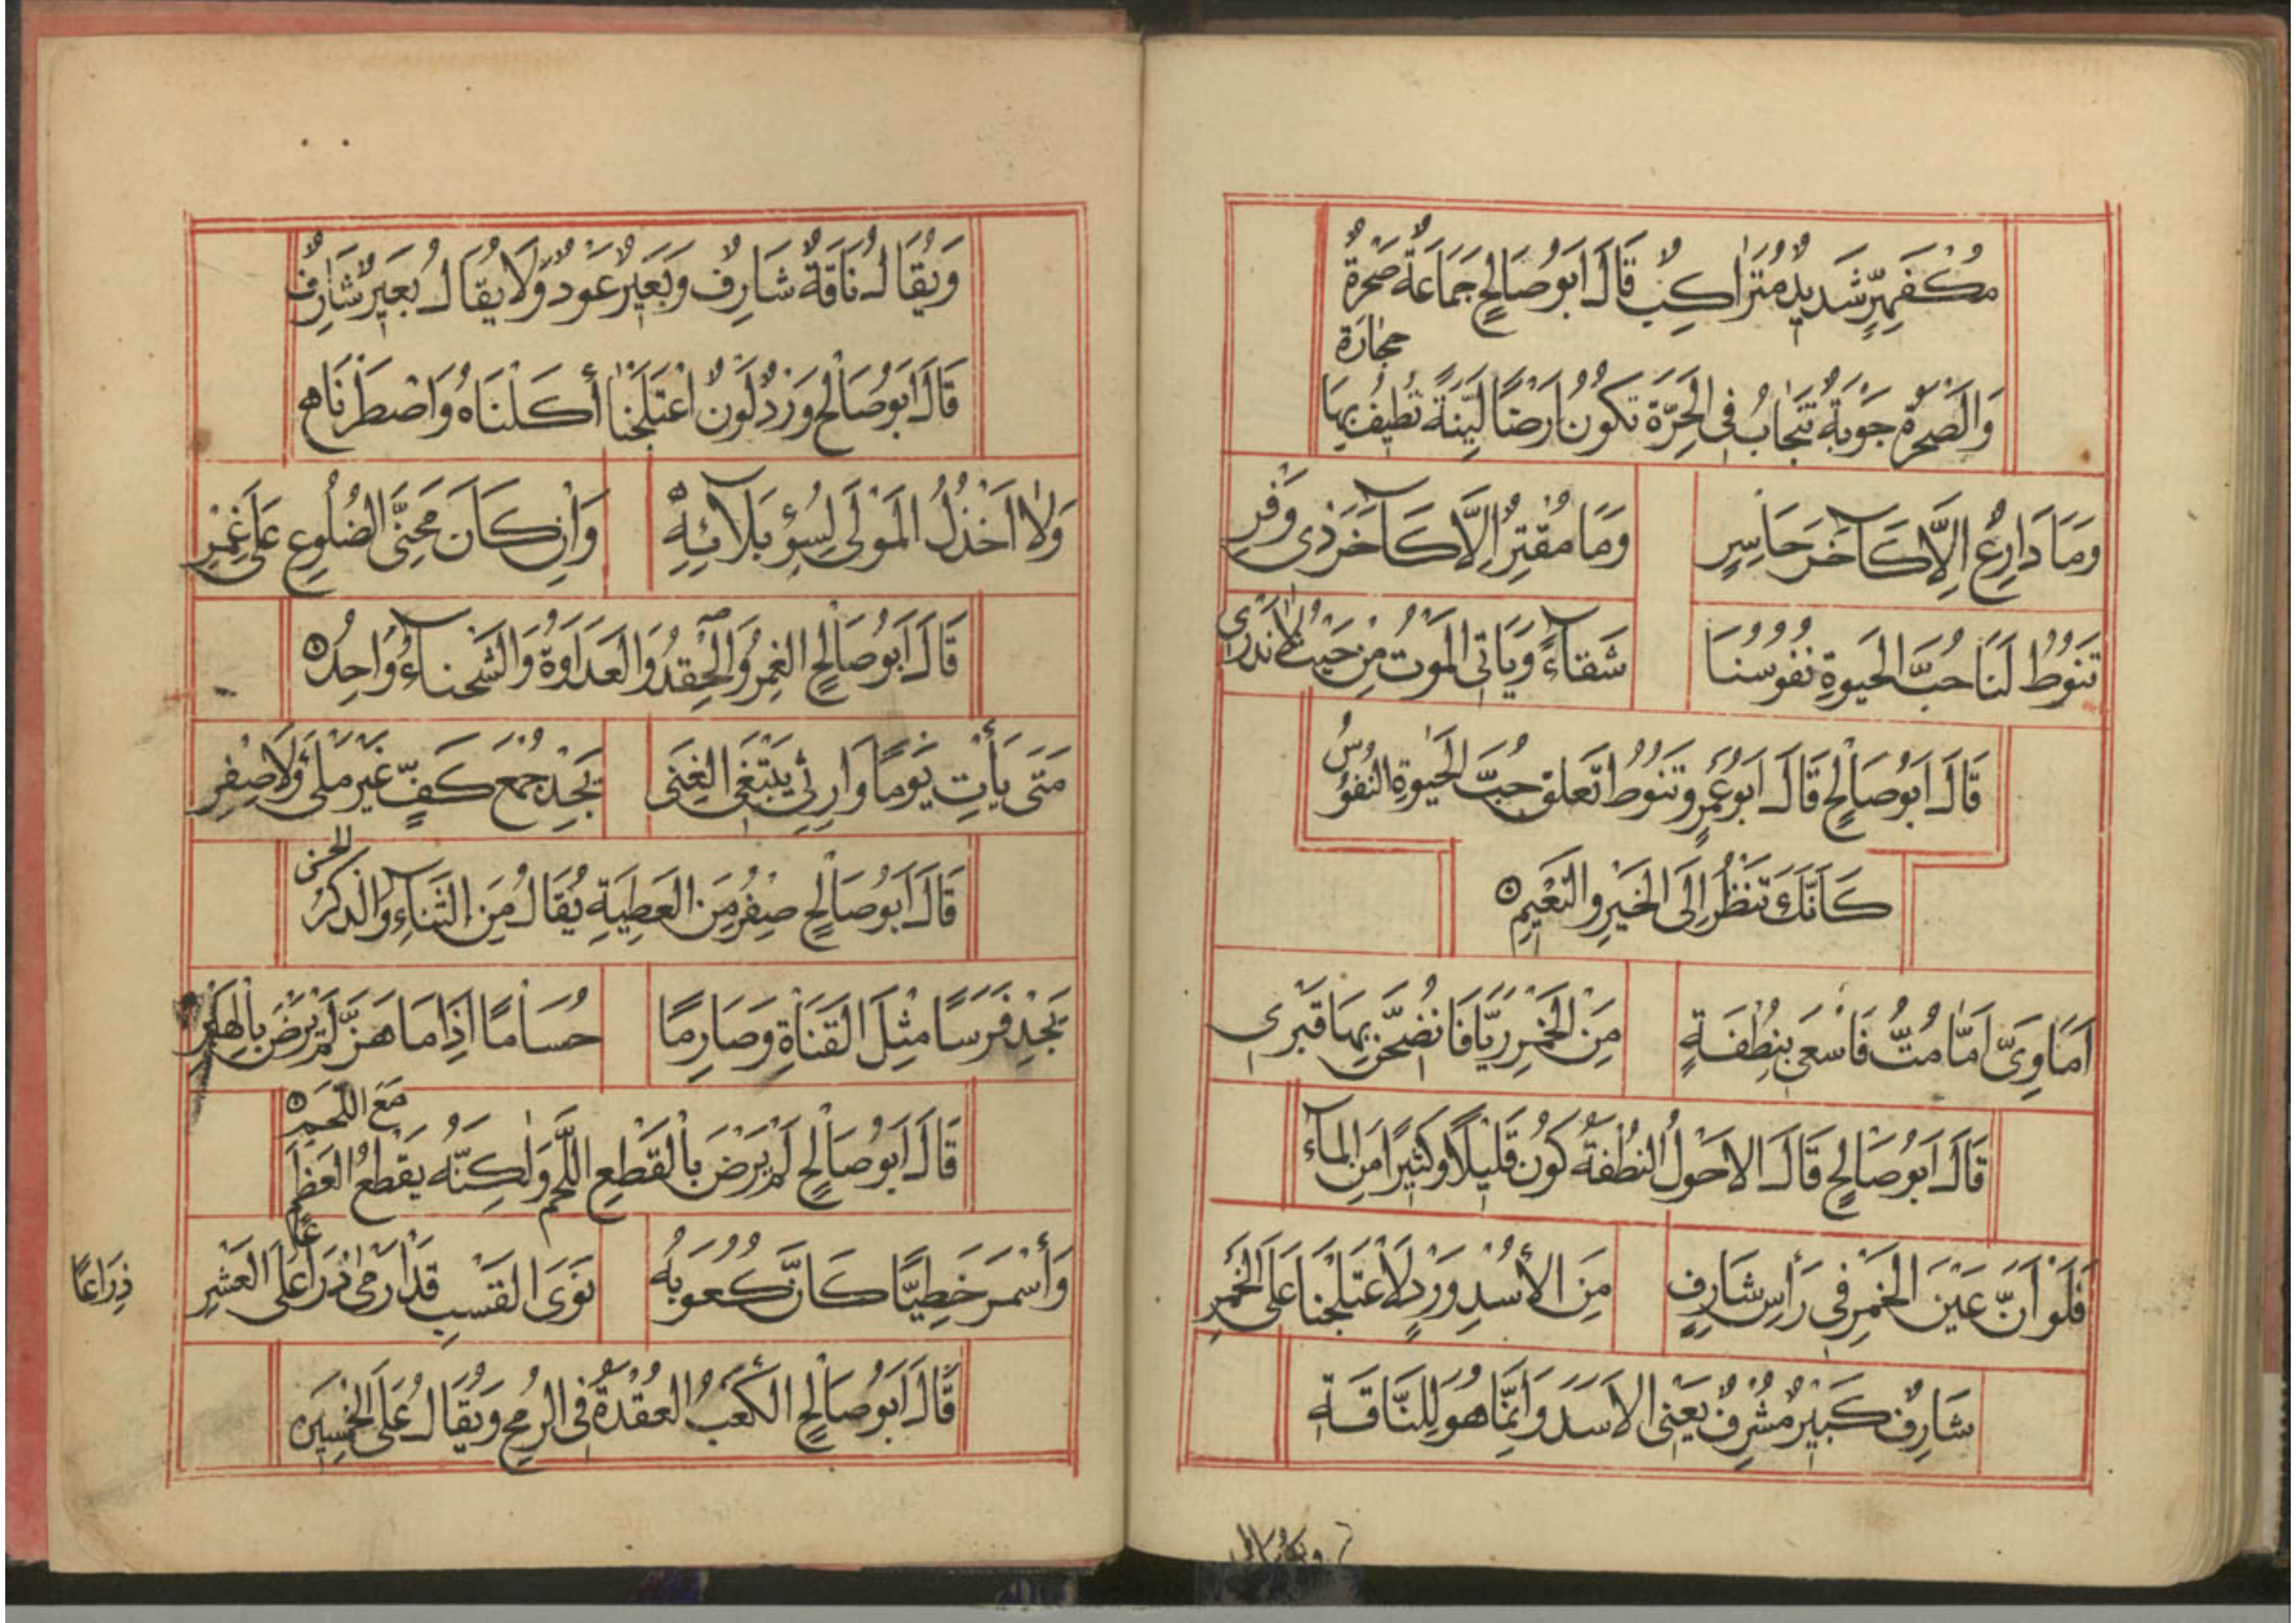 مُكْفَهِرٍّ شَدِيدٍ مُتَرَاكِبٌ قَالَ اَبُو صَالِحٍ جَمَاعَةُ صَحْرَةٌ
حِجَارَة
وَالصَّحْرَةُ جَوْبَةٌ تَنْجَابُ فِى الْحَرَّةِ تَكُونُ اَرْضًا لَيِّنَةً تُطِيفُ بِهَا
وَمَا دَارِعٌ اِلَّا كَآخَرَ حَاسِرٍ وَمَا مُقْتِرٌ اِلَّا كَآخَرَ ذِى وَفْرِ
تَنُوطُ لَنَا حُبَّ الْحَيٰوةِ نُفُوسُنَا شَقَآءً وَيَاتِى الْمَوْتُ مِنْ حَيْثُ لَا نَدْرِى
قَالَ اَبُو صَالِحٍ قَالَ اَبُو عُمَرٍ وتَنُوطُ اتَعلق حُبَّ الْحَيٰوةِ النُّفُوسُ
كَاَنَّكَ تَنْظُرُ اِلَى الْخَيْرِ وَالنَّعِيمِ
اَمَاوِىَّ اِمَّا مُتُّ فَاسْعَى بِنُطْفَةٍ مِنَ الْخَمْرِ رِيًّا فَانْضَحِنَّ بِهَا قَبْرِى
قَالَ اَبُو صَالِحٍ قَالَ الاَحْوَلُ النُّطْفَةُ كُونُ قَلِيلًا وَكَثِيرًا مِنَ الْمَآء
فَلَوْ اَنَّ عَيْنَ الْخَمْرِ فِى رَأْسِ شَارِفٍ مِنَ الأُسْدِ وَرْدٍ لَاعْتَلَجْنَا عَلَى الْخَمْرِ
شَارِفٌ كَبِيْرٌ مُشْرِفٌ يَعْنِى الاَسَدَ وَاِنَّمَا هُوَ لِلنَّاقَةِ
وَيُقَالُ نَاقَةٌ شَارِفٌ وَبَعِيْرٌ عَوْدٌ وَلَا يُقَالُ بَعِيْرٌ شَارِفٌ
قَالَ اَبُو صَالِحٍ وَرْدٌ لَوْنٌ اعْتَلَجْنَا أَكَلْنَاهُ وَاصْطَرَنَاه
وَلَا اَخْذُلُ الْمَوْلَى لِسُوْءِ بَلَآئِهِ وَاِنْ كَانَ مَحْنِىَّ الضُّلُوعِ عَلَى غِمْرِ
قَالَ اَبُو صَالِحٍ الغِمْرُ وَالْحِقْدُ وَالعَدَاوَةُ وَالشَّحْنَآءُ وَاحِدٌ
مَتَى يَأْتِ يَوْمًا وَارِثِى يَبْتَغِى الْغِنَى يَجِدْ جُمْعَ كَفٍّ غَيْرَ مَلْئٍ وَلَا صِفْرِ
الحسن
قَالَ اَبُو صَالِحٍ صِفْرٌ مِنَ العَطِيَةِ يُقَالُ مِنَ الثَّنَآءِ وَالذِّكْرُ
يَجِدْ فَرَسًا مِثْلَ الْقَنَاةِ وَصَارِمًا حُسَامًا اِذَا مَا هَزَّ لَمْ يَرْضَ بِالْهَبْرِ
مَعَ اللَّحْمِ
قَالَ اَبُو صَالِحٍ لَمْ يَرْضَ بِالْقَطْعِ اللَّحْمِ وَلٰكِنَّهُ يَقْطَعُ الْعَظْمَ
وَأَسْمَرَ خَطِيًّا كَاَنَّ كُعُوبَهُ نَوَى الْقَسْبِ قَدْ اَرْمَى ذِرَاعًا عَلَى الْعَشْرِ
ذِرَاعًا
قَالَ اَبُو صَالِحٍ الكَعْبُ الْعُقْدَةُ فِى الرُّمْحِ وَيُقَالُ عَلَى الْخَمْسِينَ